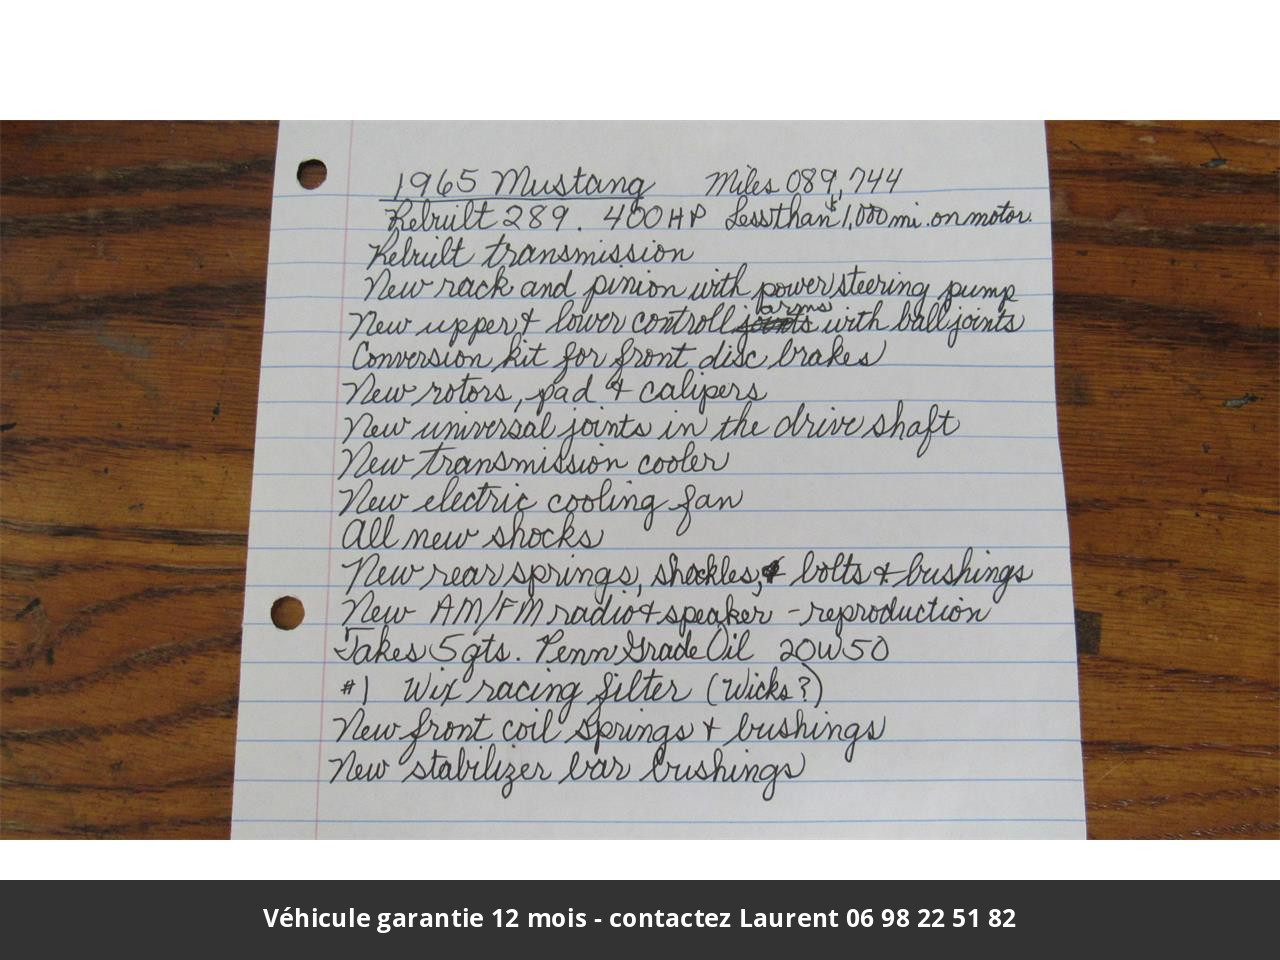 1965 Mustang Miles 089,744
Rebuilt 289. 400 HP Less than 1,000 mi. on motor.
Rebuilt transmission
New rack and pinion with power steering pump
New upper & lower controll arms with ball joints
Conversion kit for front disc brakes
New rotors, pad & calipers
New universal joints in the drive shaft
New transmission cooler
New electric cooling fan
All new shocks
New rear springs, shackles, & bolts & bushings
New AM/FM radio & speaker - reproduction
Takes 5 qts. Penn Grade Oil 20W50
#1 Wix racing filter (Wicks?)
New front coil springs & bushings
New stabilizer bar bushings
Véhicule garantie 12 mois - contactez Laurent 06 98 22 51 82